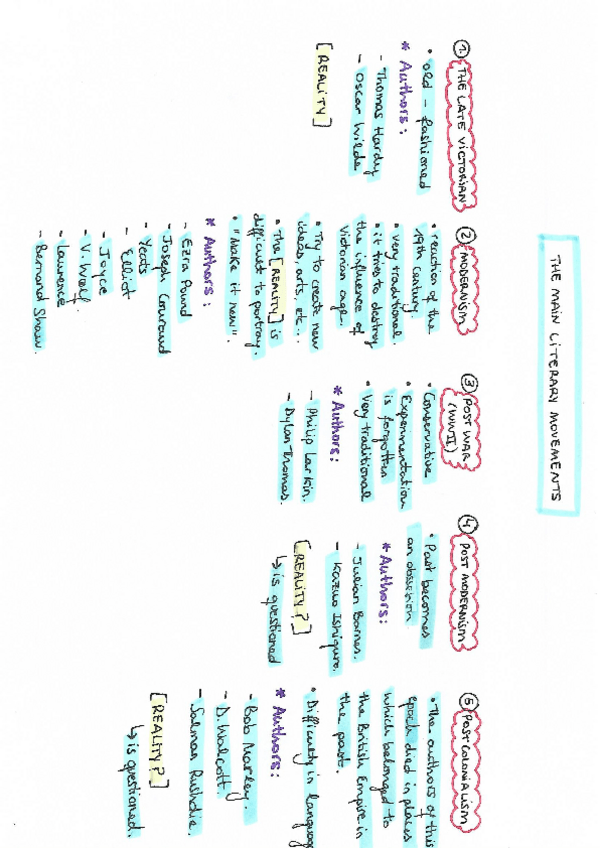 THE MAIN LITERARY MOVEMENTS
① THE LATE VICTORIAN
• old - fashioned
* Authors:
- Thomas Hardy
- Oscar Wilde
[REALITY]
② MODERNISM
• reaction of the
19th century.
• very traditional.
• it tries to destroy
the influence of
Victorian age.
• Try to create new
ideas, arts, etc...
• The [REALITY] is
difficult to portray.
• "Make it new".
* Authors:
- Ezra Pound
- Joseph Conround
- Yeats
- Elliot
- Joyce
- V. Woolf.
- Lawrence
- Bernand Shaw.
③ POST WAR
(WWII)
• Conservative
• Experimentation
is forgotten
• Very traditional
* Authors:
- Philip Larkin.
- Dylan Thomas.
④ POST MODERNISM
• Past becomes
an obsession
* Authors:
- Julian Barnes.
- Kazuo Ishiguro.
[REALITY?]
↳ is questioned
⑤ POSTCOLONIALISM
• The authors of this
epoch died in places
which belonged to
the British Empire in
the past.
• Difficulty in language
* Authors:
- Bob Marley.
- D. Walcott.
- Salman Rushdie.
[REALITY?]
↳ is questioned.